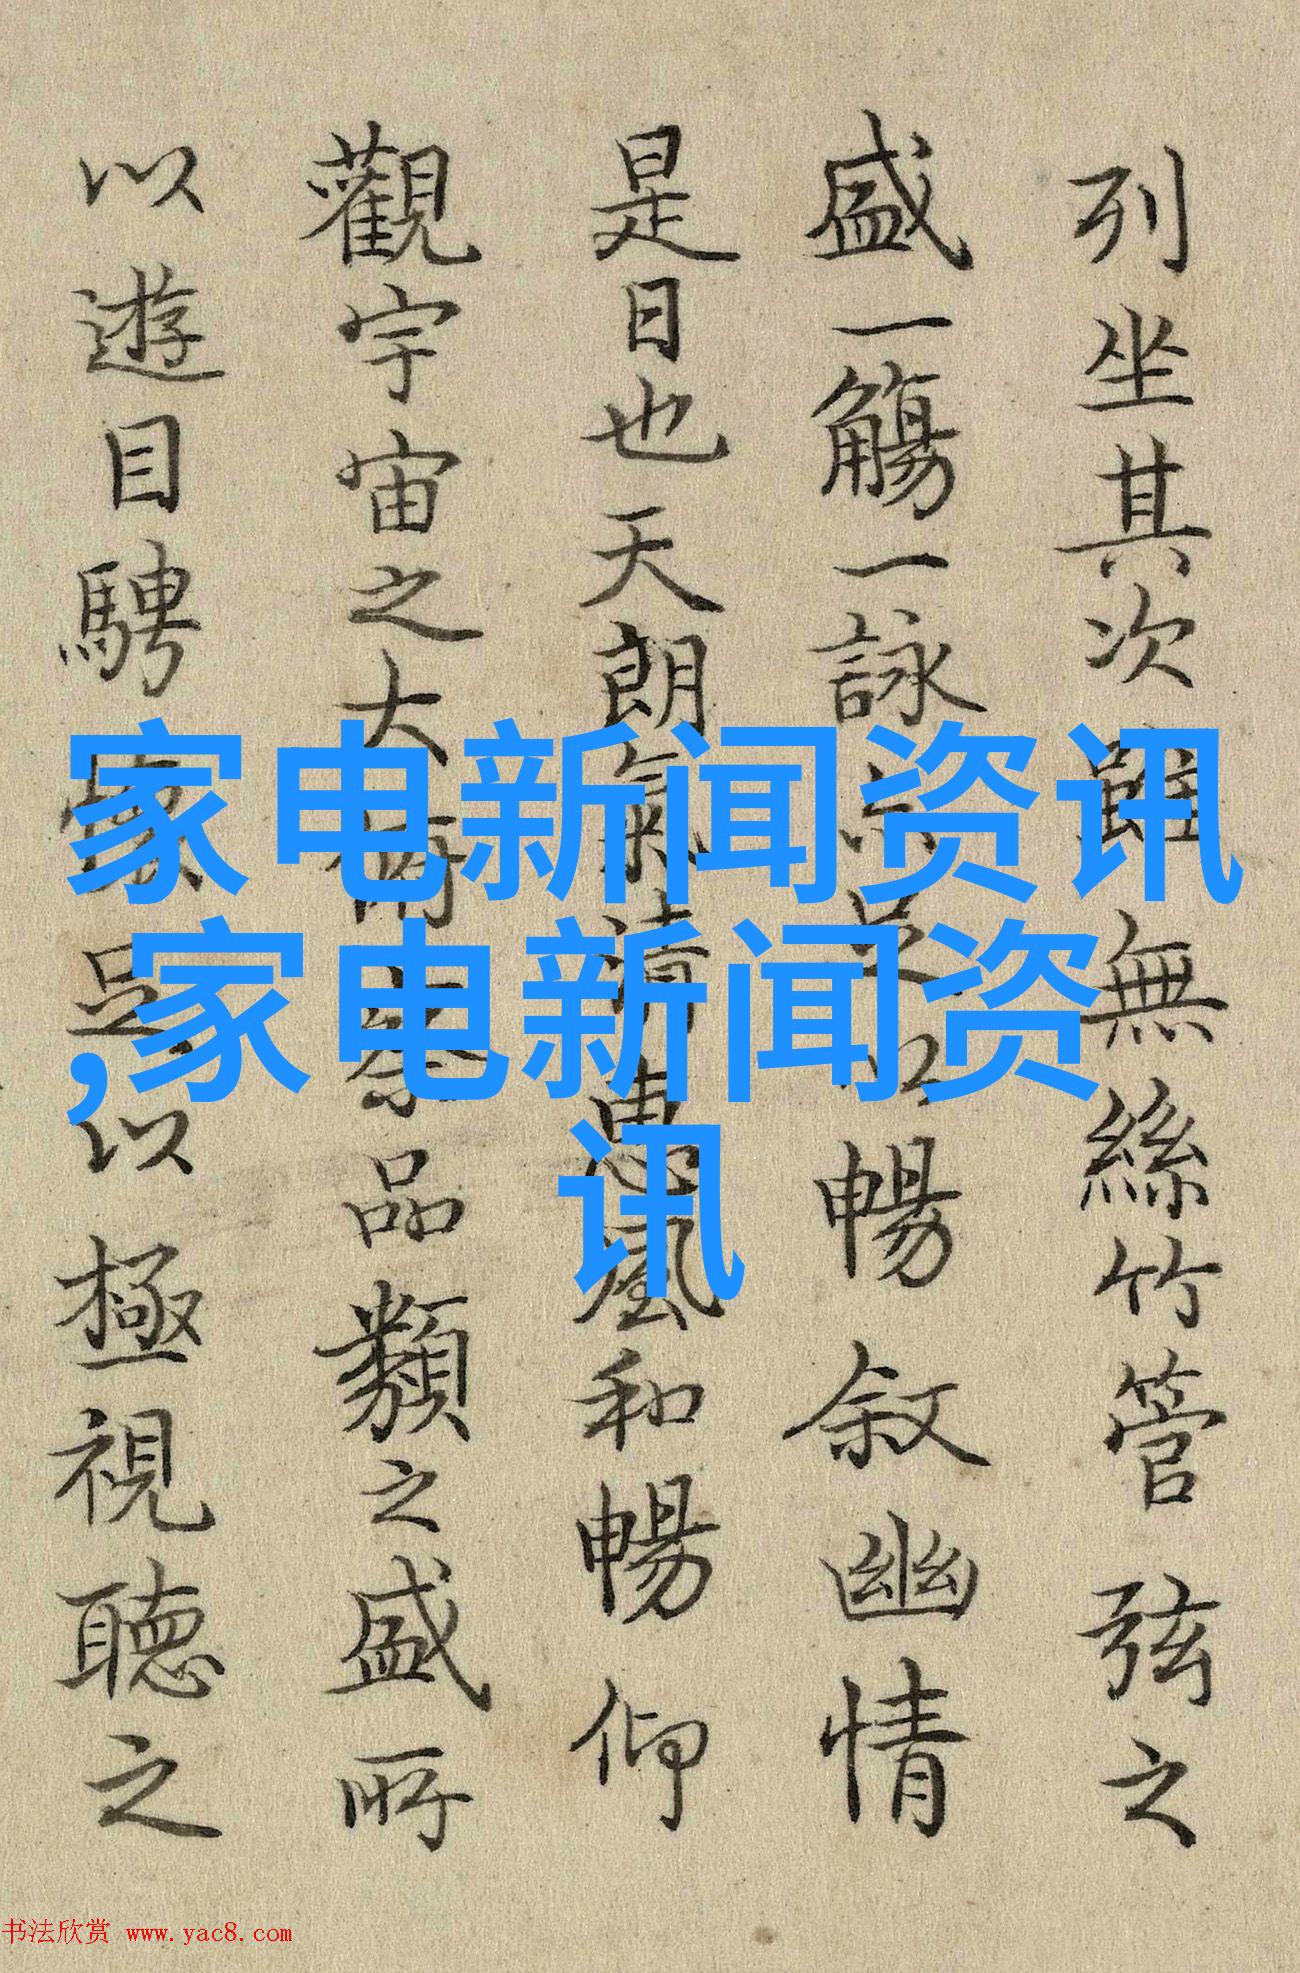 列坐其次雖無絲竹管弦之
盛一觴一詠亦足以暢叙幽情
是日也天朗氣清惠風和暢仰
觀宇宙之大俯察品類之盛所
以遊目騁懷足以極視聽之
家电新闻资讯
,家电新闻资
讯
书法欣赏 www.yac8.com